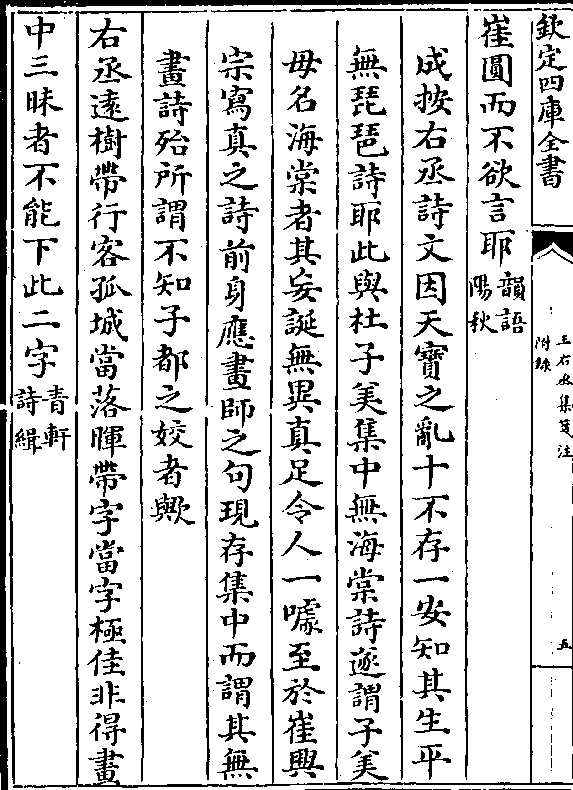 欽定四庫全書
王右丞集箋注
附錄
五
崔圓而不欲言耶韻語陽秋
成按右丞詩文因天寶之亂十不存一安知其生平
無琵琶詩耶此與杜子美集中無海棠詩遂謂子美
母名海棠者其妄誕無異真足令人一噱至於崔興
宗寫真之詩前身應畫師之句現存集中而謂其無
畫詩殆所謂不知子都之姣者歟
右丞遠樹帶行客孤城當落暉帶字當字極佳非得畫
中三昧者不能下此二字青軒詩緝